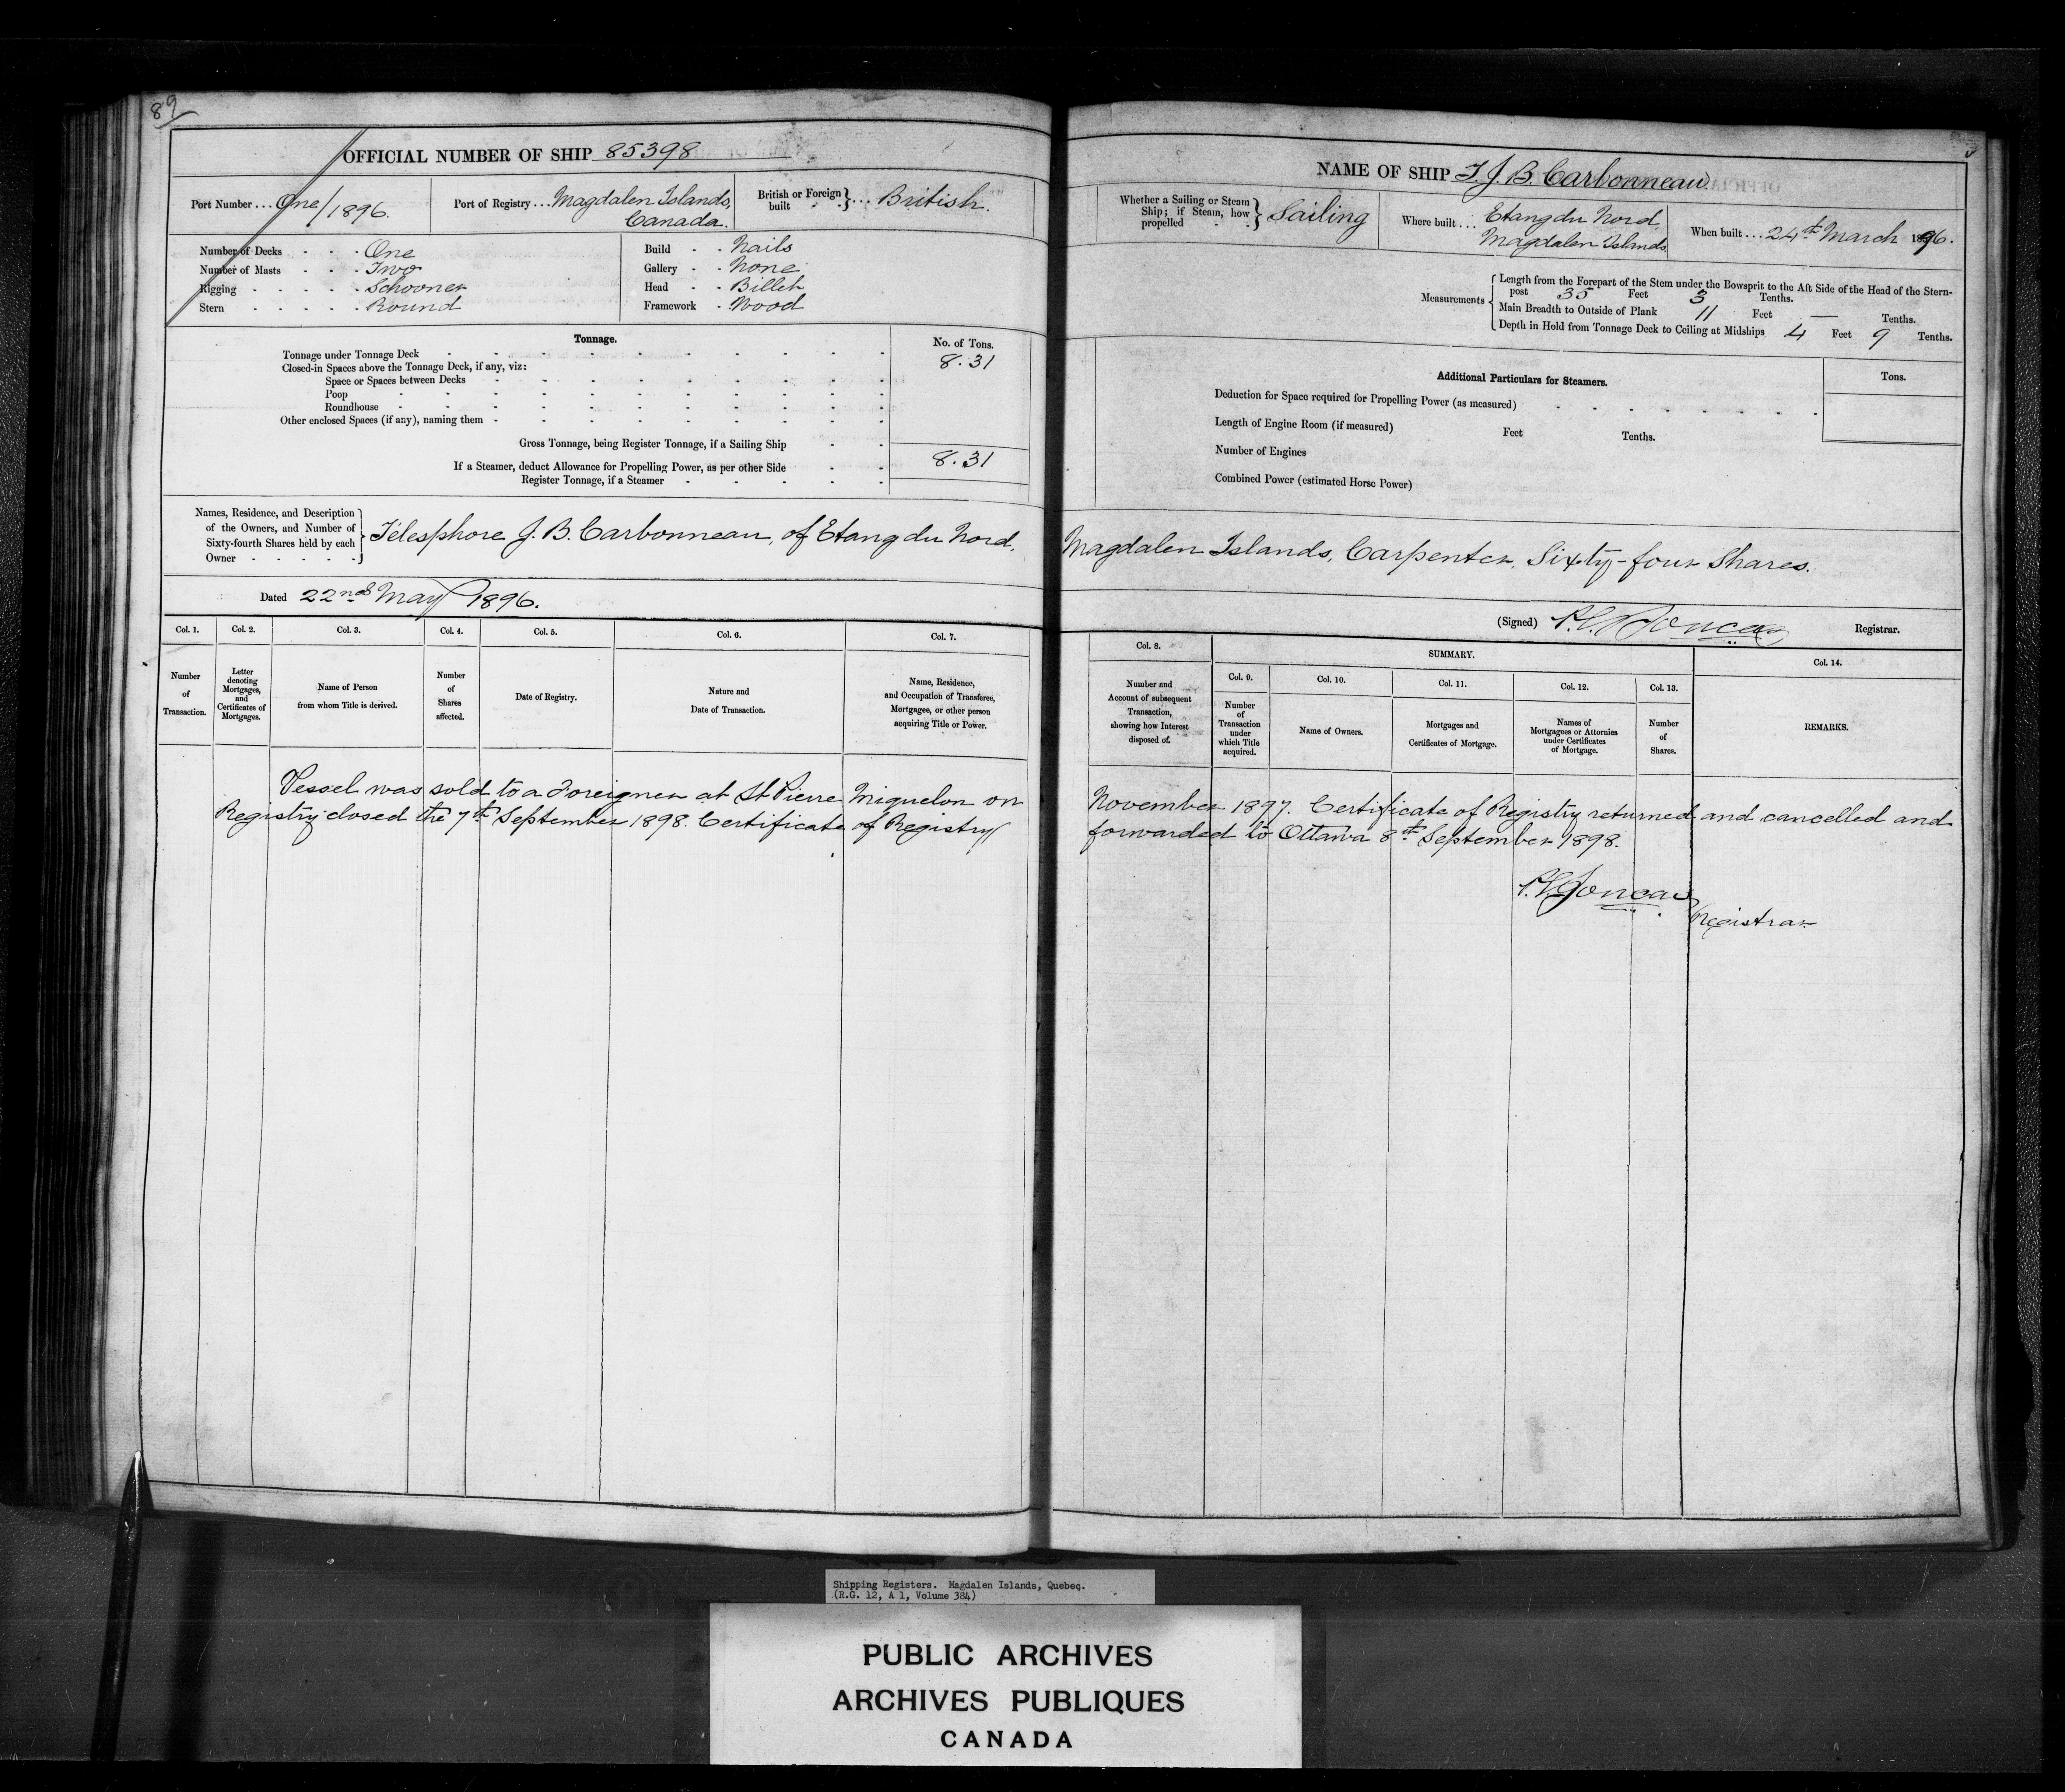 89
OFFICIAL NUMBER OF SHIP 85398
Port Number ... One/1896.
Port of Registry ... Magdalen Islands, Canada.
British or Foreign built } ... British.
Number of Decks One
Number of Masts Two
Rigging Schooner
Stern Round
Build Nails
Gallery None
Head Billet
Framework Wood
Tonnage.
No. of Tons.
Tonnage under Tonnage Deck 8.31
Closed-in Spaces above the Tonnage Deck, if any, viz:
Space or Spaces between Decks
Poop
Roundhouse
Other enclosed Spaces (if any), naming them
Gross Tonnage, being Register Tonnage, if a Sailing Ship
If a Steamer, deduct Allowance for Propelling Power, as per other Side 8.31
Register Tonnage, if a Steamer
NAME OF SHIP T. J. B. Carbonneau
Whether a Sailing or Steam Ship; if Steam, how propelled } Sailing
Where built ... Etang du Nord Magdalen Islands
When built ... 24th March 1896.
Measurements
Length from the Forepart of the Stem under the Bowsprit to the Aft Side of the Head of the Stern-
post 35 Feet 3 Tenths.
Main Breadth to Outside of Plank 11 Feet — Tenths.
Depth in Hold from Tonnage Deck to Ceiling at Midships 4 Feet 9 Tenths.
Additional Particulars for Steamers.
Tons.
Deduction for Space required for Propelling Power (as measured)
Length of Engine Room (if measured) Feet Tenths.
Number of Engines
Combined Power (estimated Horse Power)
Names, Residence, and Description
of the Owners, and Number of
Sixty-fourth Shares held by each
Owner
Télesphore J. B. Carbonneau, of Etang du Nord, Magdalen Islands, Carpenter, Sixty-four Shares.
Dated 22nd May 1896.
(Signed) Registrar.
Col. 1.
Number
of
Transaction.
Col. 2.
Letter
denoting
Mortgages,
and
Certificates of
Mortgages.
Col. 3.
Name of Person
from whom Title is derived.
Col. 4.
Number
of
Shares
affected.
Col. 5.
Date of Registry.
Col. 6.
Nature and
Date of Transaction.
Col. 7.
Name, Residence,
and Occupation of Transferee,
Mortgagee, or other person
acquiring Title or Power.
Col. 8.
Number and
Account of subsequent
Transaction,
showing how Interest
disposed of.
SUMMARY.
Col. 9.
Number
of
Transaction
under
which Title
acquired.
Col. 10.
Name of Owners.
Col. 11.
Mortgages and
Certificates of Mortgage.
Col. 12.
Names of
Mortgagees or Attornies
under Certificates
of Mortgage.
Col. 13.
Number
of
Shares.
Col. 14.
REMARKS.
Vessel was sold to a Foreigner at St Pierre Miquelon on November 1897. Certificate of Registry returned and cancelled and
Registry closed the 7th September 1898. Certificate of Registry forwarded to Ottawa 8th September 1898.
Registrar
Shipping Registers. Magdalen Islands, Quebec.
(R.G. 12, A 1, Volume 384)
PUBLIC ARCHIVES
ARCHIVES PUBLIQUES
CANADA